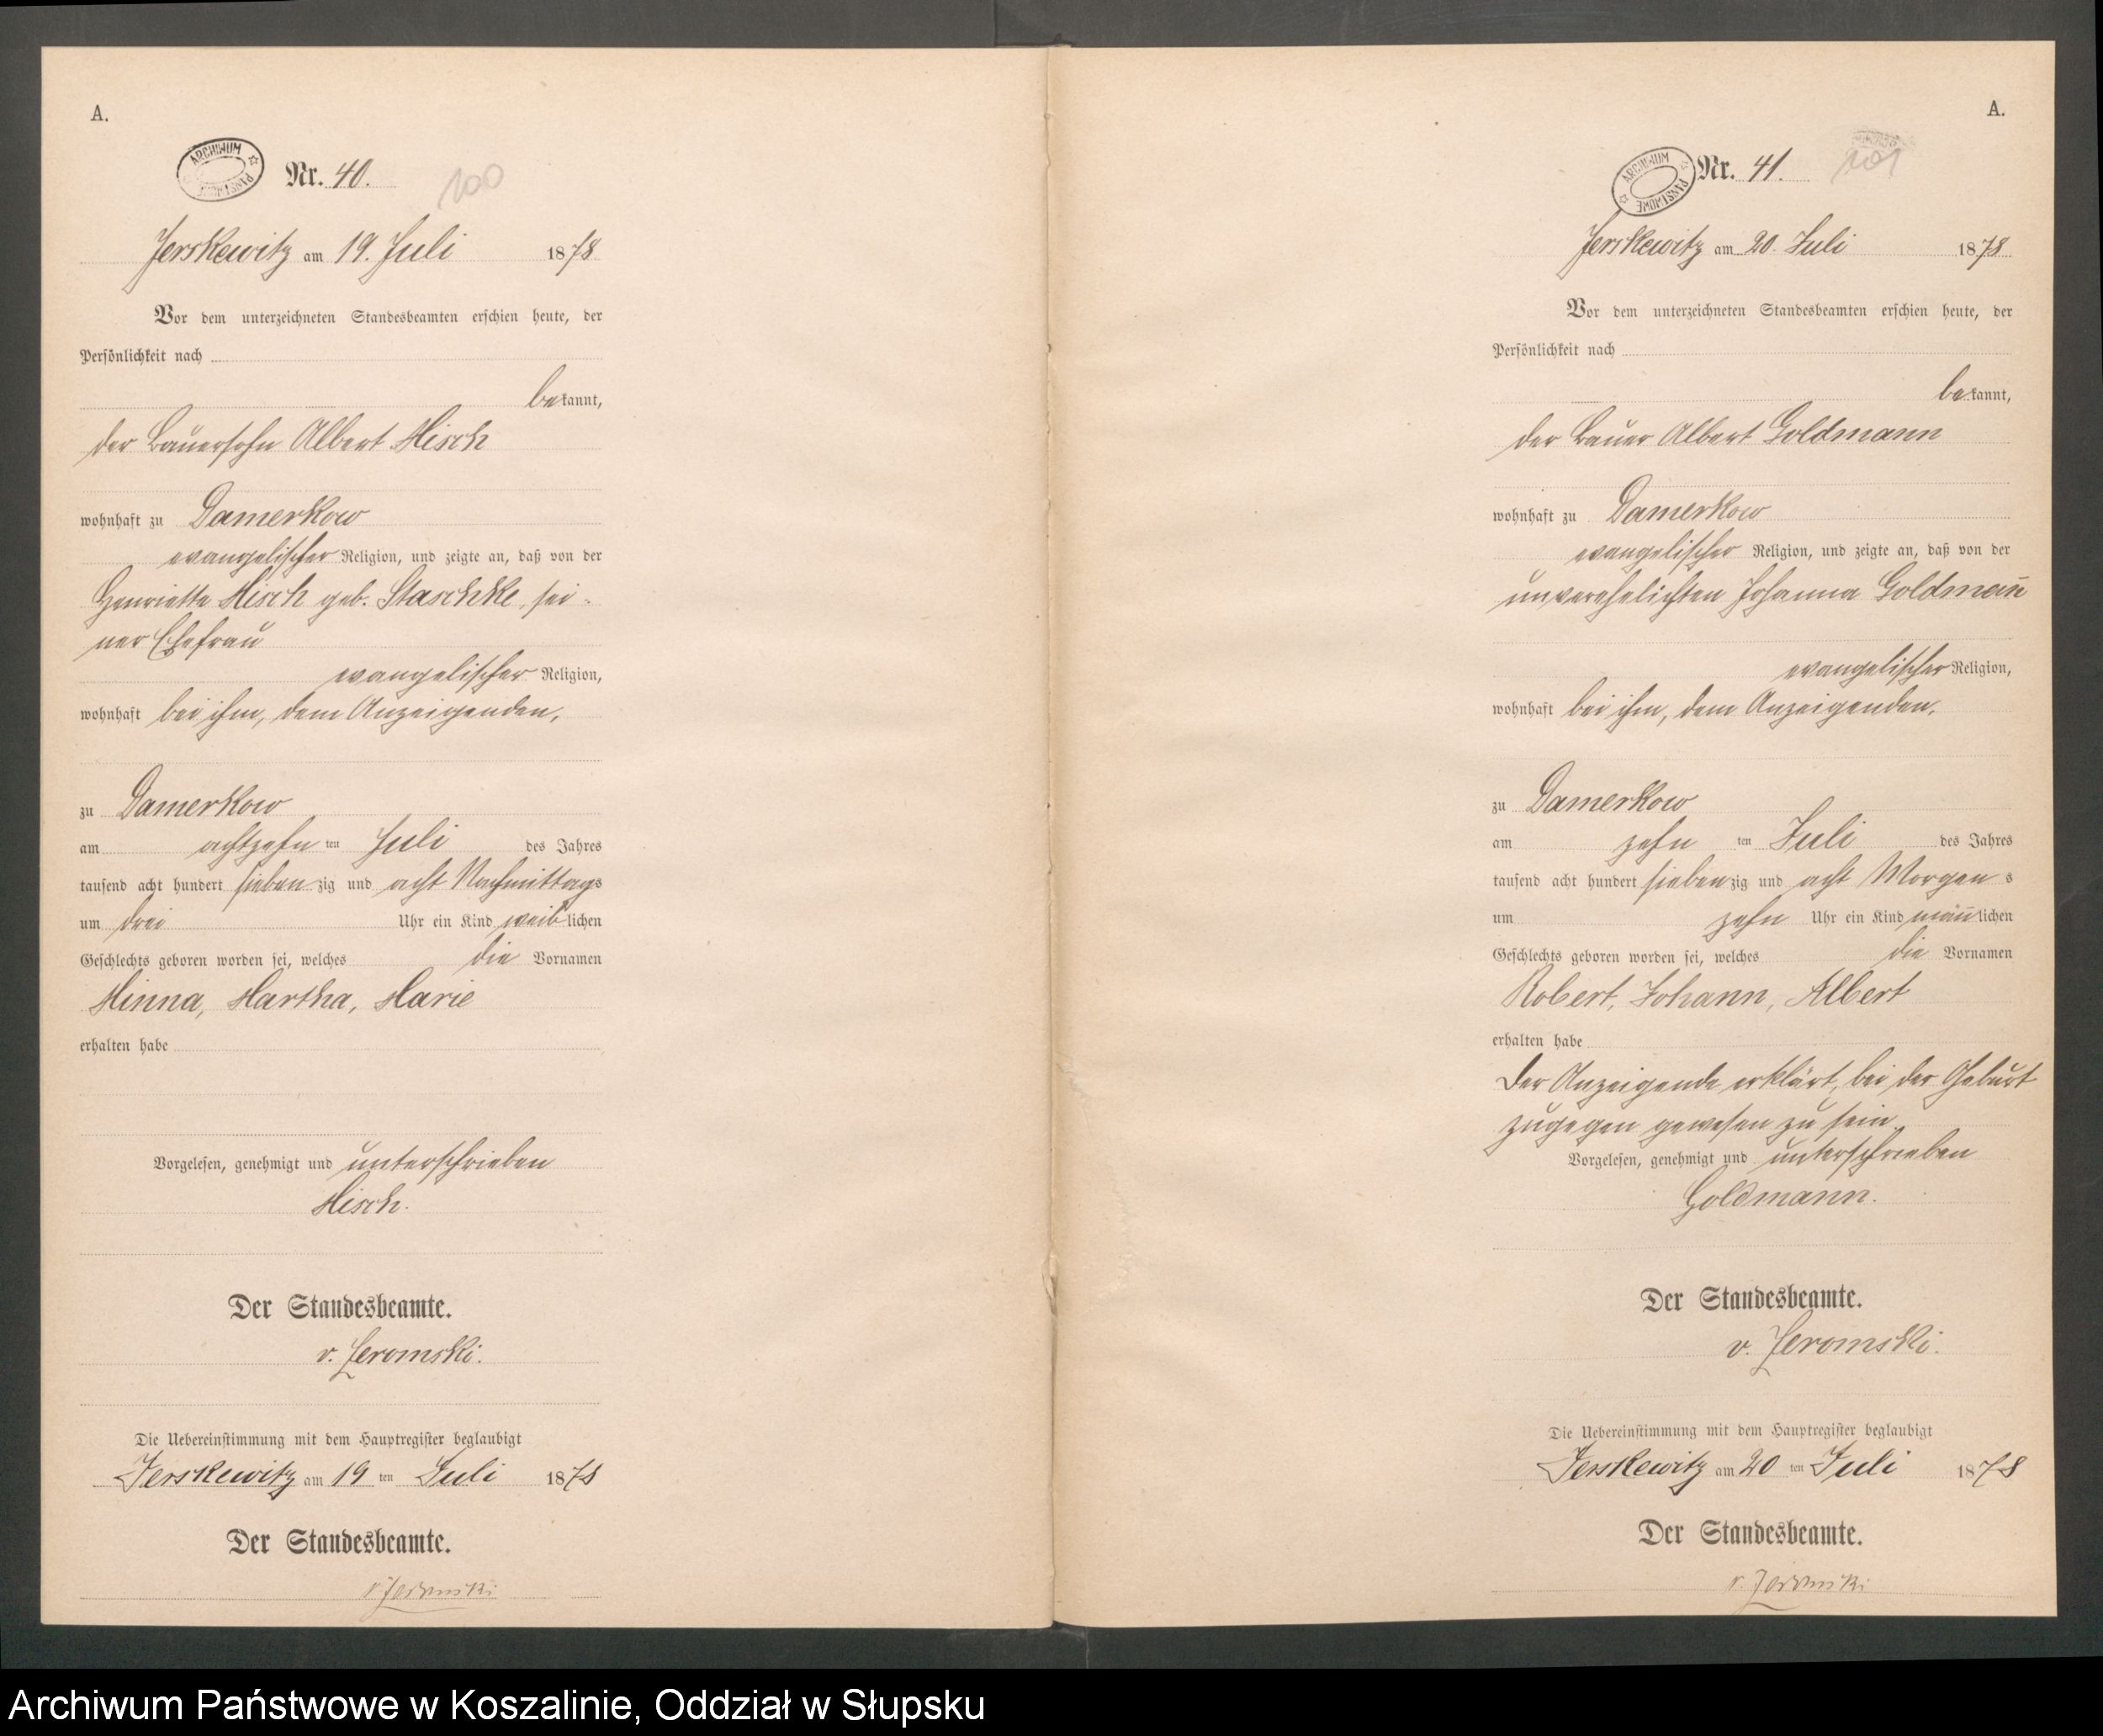 A.
ARCHIWUM PAŃSTWOWE
Nr. 40.
100
Jerskewitz am 19. Juli 1878
Vor dem unterzeichneten Standesbeamten erschien heute, der
Persönlichkeit nach
bekannt,
der Bauersohn Albert Misch
wohnhaft zu Damerkow
evangelischer Religion, und zeigte an, daß von der
Henriette Misch geb. Staschke, sei-
ner Ehefrau
evangelischer Religion,
wohnhaft bei ihm, dem Anzeigenden,
zu Damerkow
am achtzehn ten Juli des Jahres
tausend acht hundert siebenzig und acht Nachmittags
um drei Uhr ein Kind weiblichen
Geschlechts geboren worden sei, welches die Vornamen
Minna, Martha, Marie
erhalten habe
Vorgelesen, genehmigt und unterschrieben
Misch.
Der Standesbeamte.
v. Jeromski.
Die Uebereinstimmung mit dem Hauptregister beglaubigt
Jerskewitz am 19 ten Juli 1878
Der Standesbeamte.
v Jeromski
A.
ARCHIWUM PAŃSTWOWE
Nr. 41.
101
Jerskewitz am 20. Juli 1878
Vor dem unterzeichneten Standesbeamten erschien heute, der
Persönlichkeit nach
bekannt,
der Bauer Albert Goldmann
wohnhaft zu Damerkow
evangelischer Religion, und zeigte an, daß von der
unverehelichten Johanna Goldman̄
evangelischer Religion,
wohnhaft bei ihm, dem Anzeigenden,
zu Damerkow
am zehn ten Juli des Jahres
tausend acht hundert siebenzig und acht Morgens
um zehn Uhr ein Kind män̄lichen
Geschlechts geboren worden sei, welches die Vornamen
Robert, Johann, Albert
erhalten habe
Der Anzeigende erklärt, bei der Geburt
zugegen gewesen zu sein.
Vorgelesen, genehmigt und unterschrieben
Goldmann.
Der Standesbeamte.
v. Jeromski.
Die Uebereinstimmung mit dem Hauptregister beglaubigt
Jerskewitz am 20 ten Juli 1878
Der Standesbeamte.
v. Jeromski
Archiwum Państwowe w Koszalinie, Oddział w Słupsku